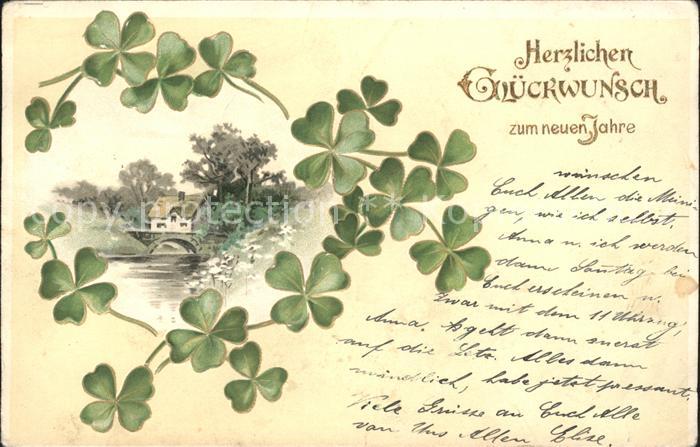 Herzlichen
Glückwunsch
zum neuen Jahre
wünschen
Euch Allen die Meini-
gen, wie ich selbst.
Anna u. ich werden
dann Sontag bei
Euch erscheinen u.
zwar mit dem 11 Uhrzug,
Anna geht dann zuerst
auf die Alles dann
mündlich, habe jetzt pressant.
Viele Grüsse an Euch Alle
von Uns Allen Elise.
copyright protection